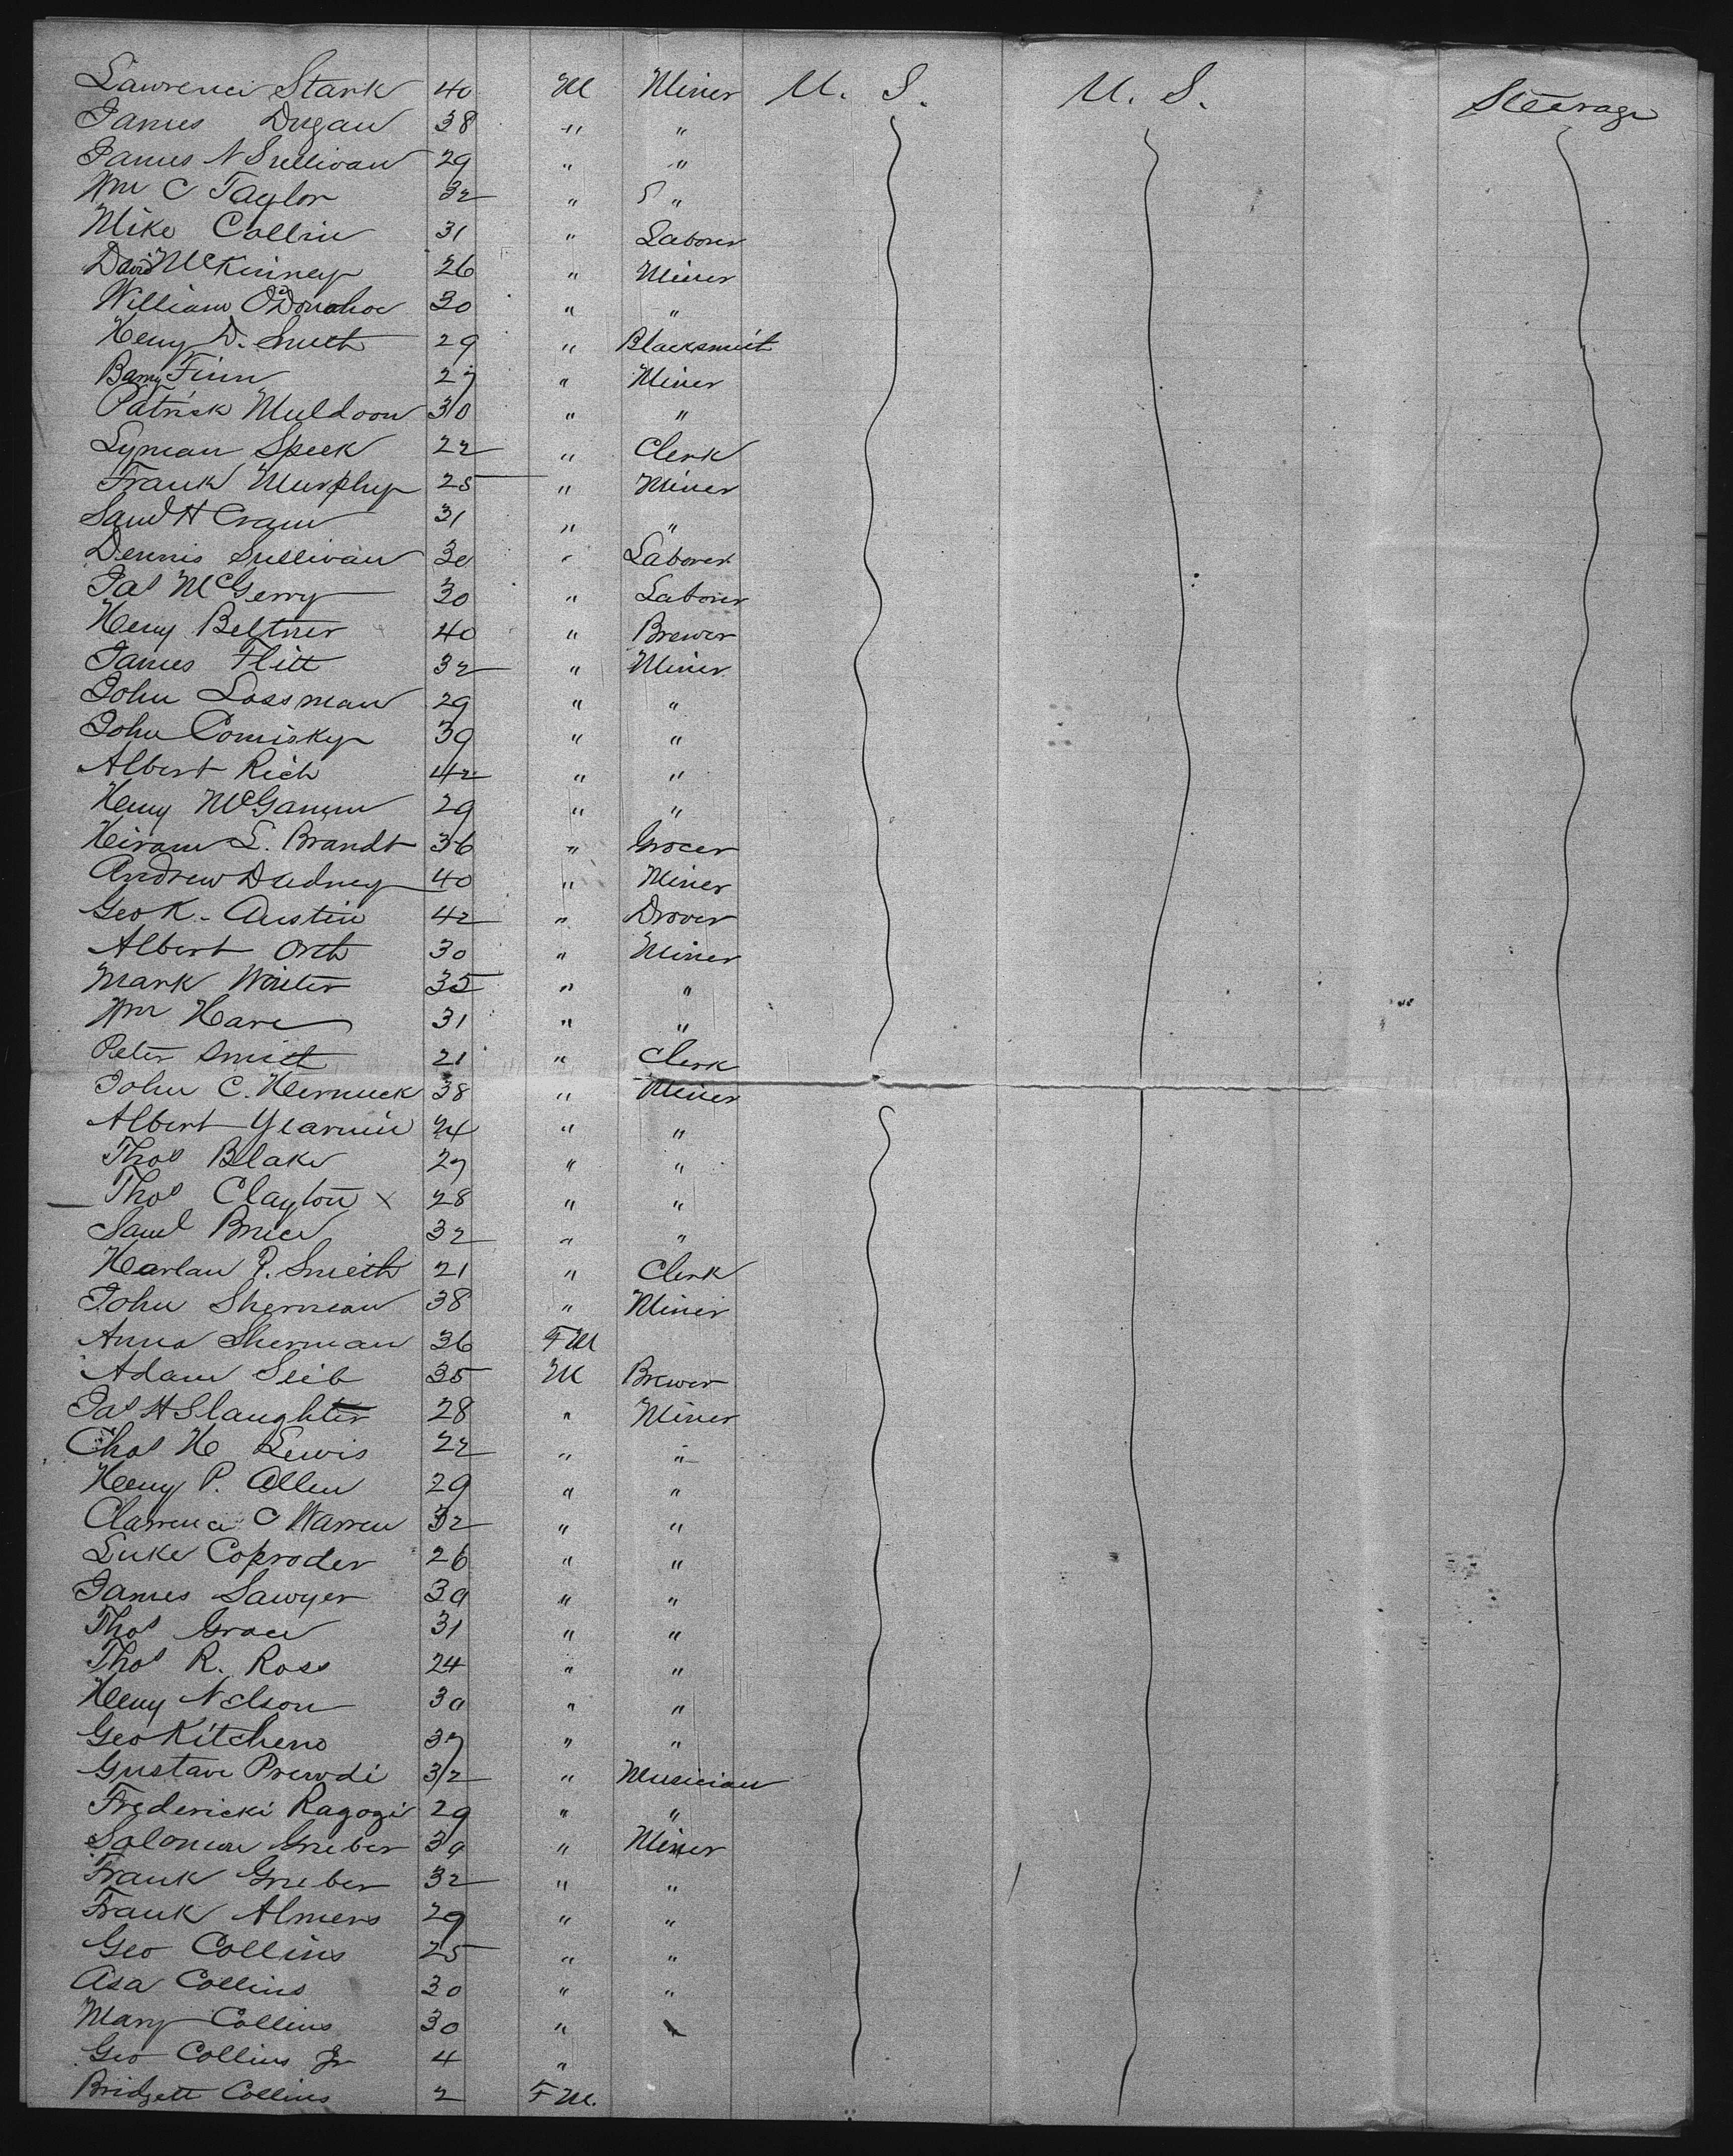 Lawrence Stark 40 M Miner U. S. U. S. Steerage
James Dugan 38 " "
James N Sullivan 29 " "
Wm C Taylor 32 " "
Mike Collin 31 " Laborer
David McKinney 26 " Miner
William O'Donahoe 30 " "
Henry D. Smith 29 " Blacksmith
Barny Finn 27 " Miner
Patrick Muldoon 30 " "
Lyman Speek 22 " Clerk
Frank Murphy 25 " Miner
Saml H Cram 31 " "
Dennis Sullivan 30 " Laborer
Jas McGerry 30 " Laborer
Henry Beltner 40 " Brewer
James Flitt 32 " Miner
John Lossman 29 " "
John Comisky 39 " "
Albert Rich 42 " "
Henry McGannn 29 " "
Heiram L. Brandt 36 " Grocer
Andrew Dudney 40 " Miner
Geo K. Austin 42 " Drover
Albert Orth 30 " Miner
Mark Winter 35 " "
Wm Hare 31 " "
Peter Smith 21 " Clerk
John C. Hernuck 38 " Miner
Albert Yearnin 24 " "
Thos Blake 27 " "
Thos Clayton x 28 " "
Saml Brice 32 " "
Harlan P. Smith 21 " Clerk
John Sherman 38 " Miner
Anna Sherman 36 FM
Adam Seib 35 M Brewer
Jas H Slaughter 28 " Miner
Chas H Lewis 22 " "
Henry P. Allen 29 " "
Clarrence C Warren 32 " "
Luke Coproder 26 " "
James Sawyer 30 " "
Thos Grace 31 " "
Thos R. Ross 24 " "
Henry Nelson 30 " "
Geo Kitchens 37 " "
Gustave Prewdi 32 " Musician
Fredericki Ragozi 29 " "
Solomon Grieber 39 " Miner
Frank Grieber 32 " "
Frank Almers 29 " "
Geo Collins 25 " "
Asa Collins 30 " "
Mary Collins 30 "
Geo Collins Jr 4 "
Bridgett Collins 2 FM.